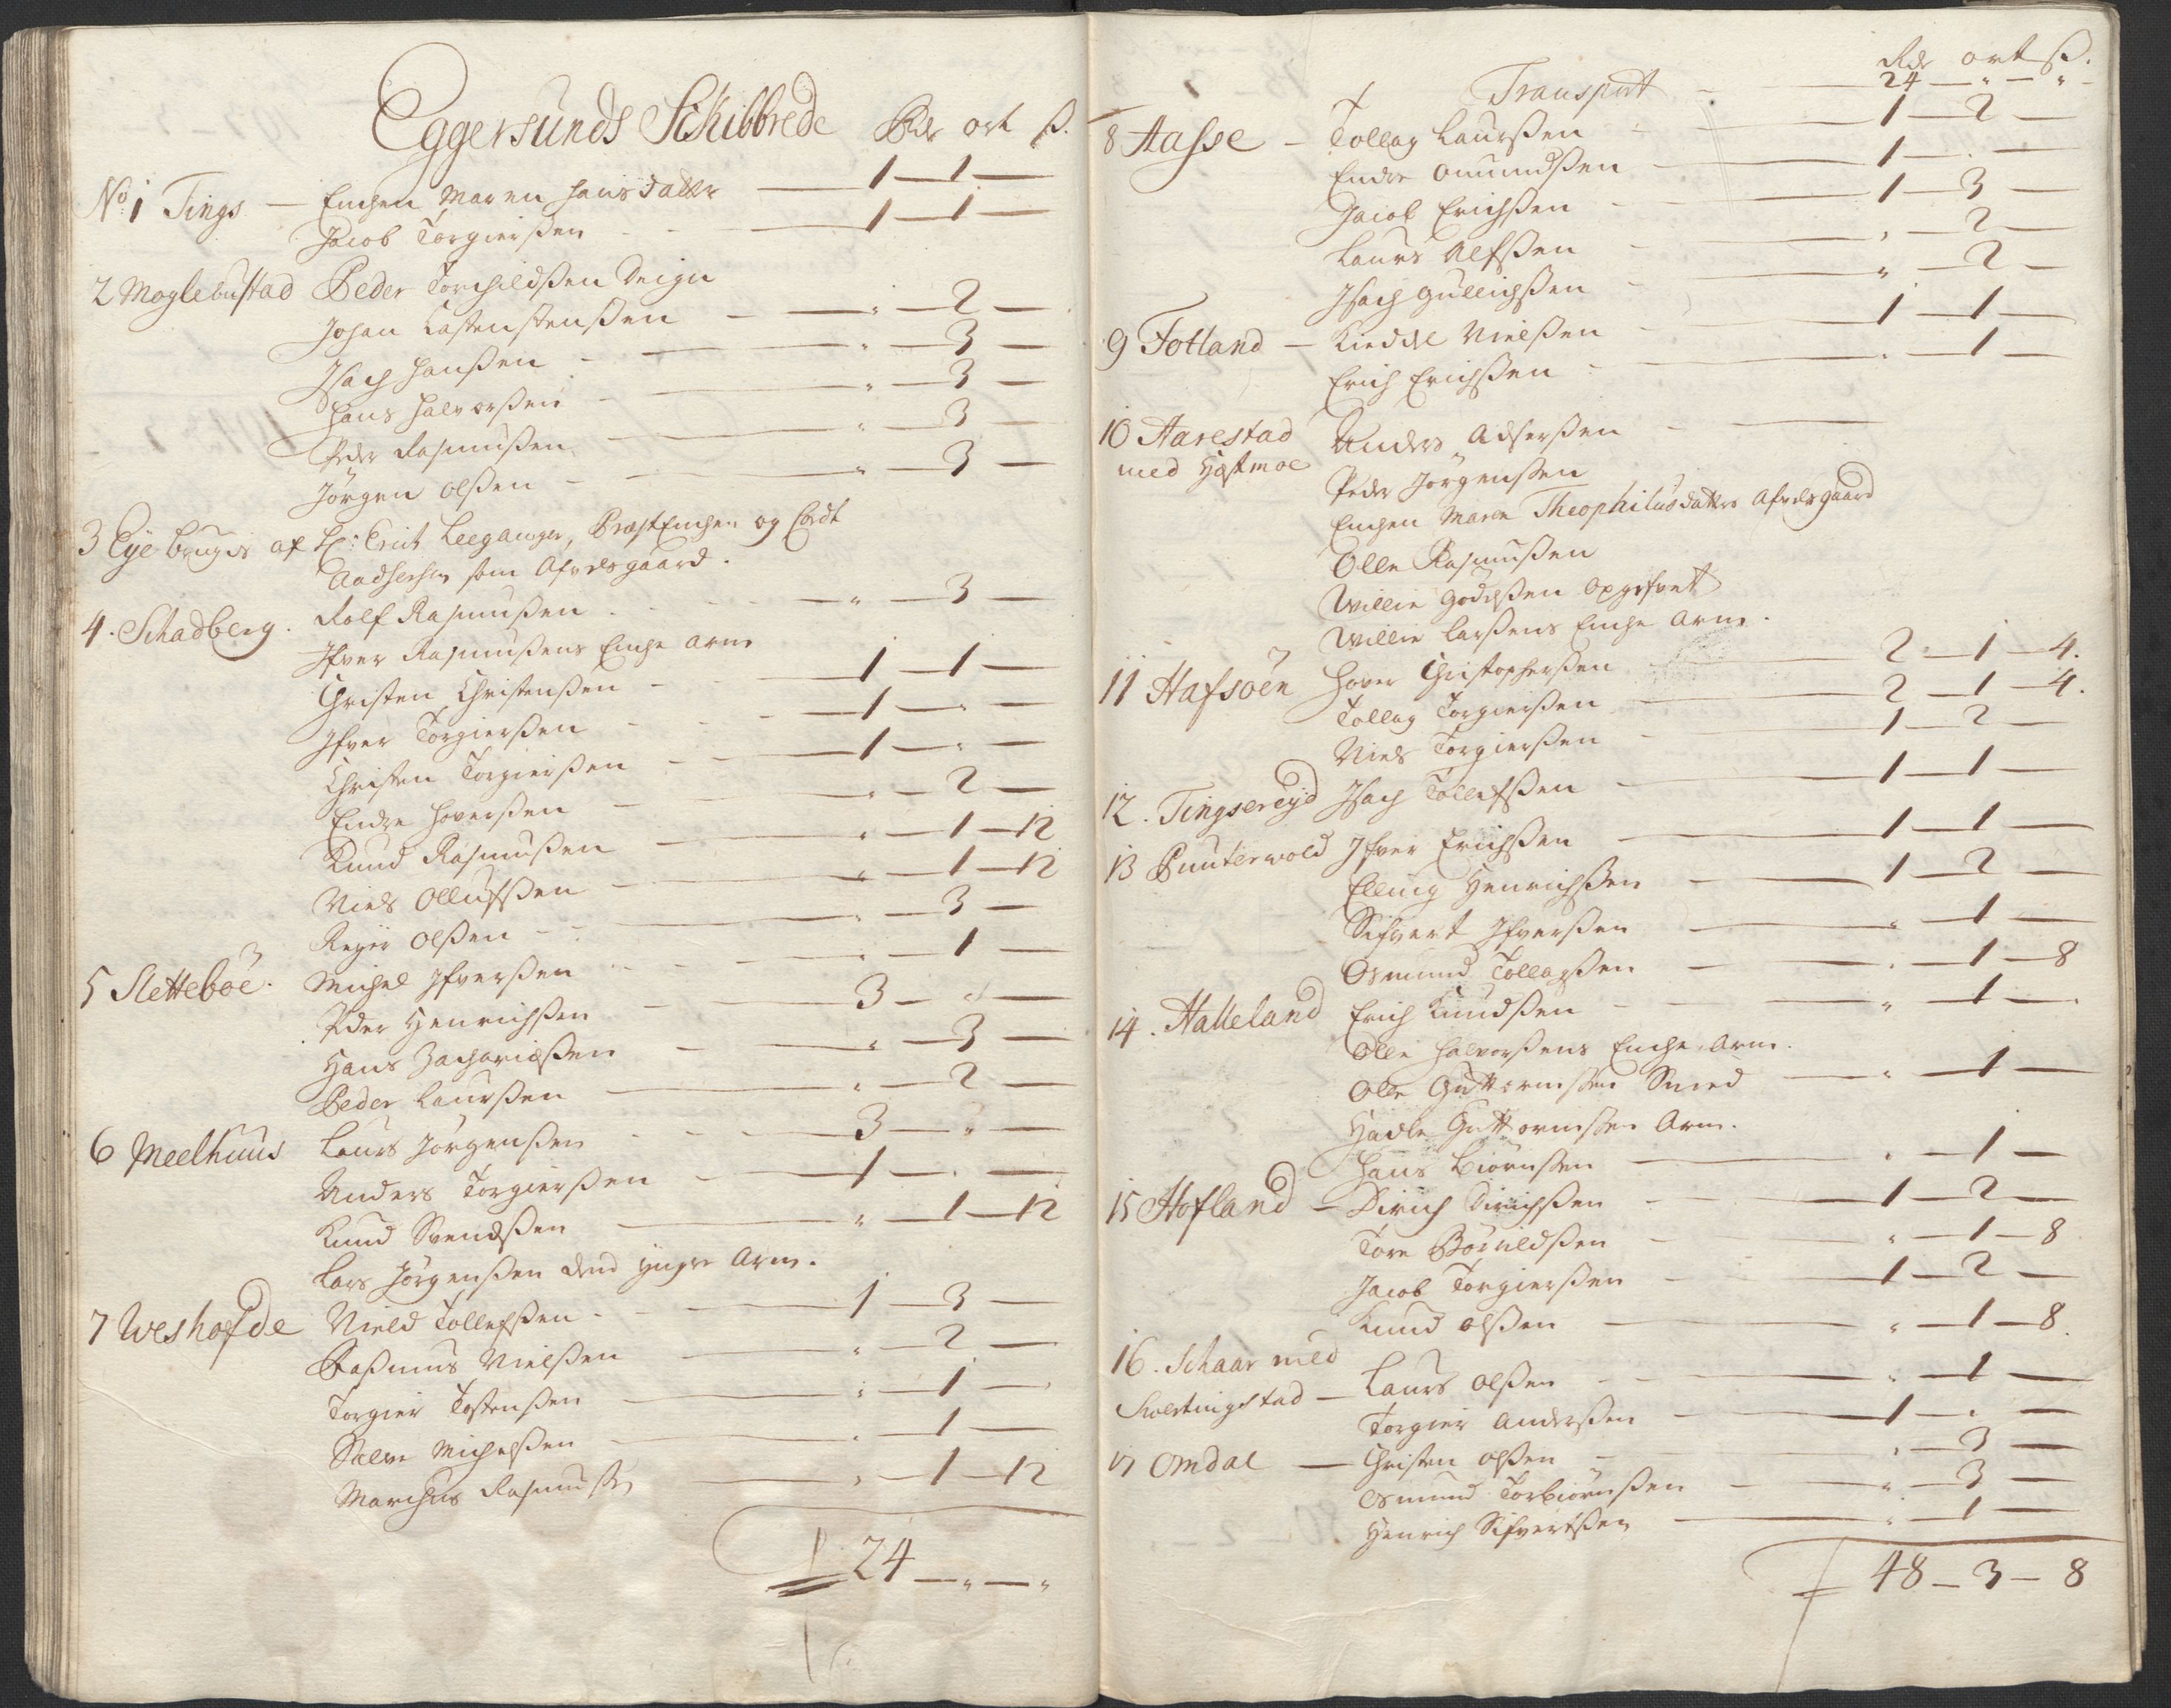 Eggersunds Schibbrede Rdr ort ß.
No 1 Tings — Enchen Maren Hansdatter — 1 — 1 —
Jacob Torgierßen — 1 — 1 —
2 Moglebustad Peder Torchildßen Deign
Johan Castenstenßen — " — 2 —
Isach Hanßen — " — 3 —
Hans Halvorßen — " — 3 —
Peder Rasmusßen — " — 3 —
Jörgen Olßen — " — 3 —
3 Eye bruges af Hr: Erich Leeganger, Præst Enchen og Cordt
Aadsersen som Afvelsgaard.
4. Schadberg. Rolf Rasmusßen — " — 3 —
Ifver Rasmusßens Enche arm
Christen Christenßen — 1 — 1 —
Ifver Torgierßen — 1 — " —
Christen Torgierßen — 1 — " —
Endre Hoverßen — " — 2 —
Knud Rasmusßen — " — 1 — 12
Niels Ollufßen — " — 1 — 12
Reyer Olßen — " — 3 —
5 Sletteböe. Michel Ifverßen — " — 1 —
Peder Henrichßen — 3 — " —
Hans Zachariæßen — " — 3 —
Peder Laurßen — " — 2 —
6 Meelhuus Laurs Jörgenßen — 3 — " —
Anders Torgierßen — 1 — " —
Knud Svendßen — " — 1 — 12
Lars Jörgenßen dend yngre Arm.
7 Weshofde Nield Tollefßen — 1 — 3 —
Raßmus Nielßen — " — 2 —
Torgier Tostenßen — " — 1 —
Salve Michelßen — " — 1 —
Marchus Rasmusßen — " — 1 — 12
24 — " — "
Rdr ort ß.
Transport — 24 — " — "
8 Aasse — Tollag Laurßen — 1 — 2 —
Endre Omundßen — 1 — " —
Jacob Erichßen — 1 — 3 —
Laurs Alfßen — " — 2 —
Isach Gullichßen — " — 2 —
9 Fotland — Kieddel Nielßen — 1 — 1 —
Erich Erichßen — " — 1 —
10 Aarestad Anders Adserßen —
med Hæstmoe Peder Jörgenßen
Enchen Maren Theophilusdatters Afvelsgaard
Olle Rasmusßen
Willie Godeßen opgifvet
Willie Larßens Enche Arm.
11 Hafsöen Hover Christopherßen — 2 — 1 — 4.
Tollag Torgierßen — 2 — 1 — 4.
Niels Torgierßen — 1 — 2 —
12. Tingsereyd Isach Tollefßen — 1 — 1 —
13 Puuterwold Ifver Erichßen — 1 — 1 —
Elling Henrichßen — 1 — 2 —
Sifvert Ifverßen — " — 1 —
Osmund Tollagßen — " — 1 — 8
14. Halleland Erich Knudßen — " — 1 —
Olle Halvorßens Enche Arm.
Olle Guttormßen Smed — " — 1 —
Hadle Guttormßen Arm.
Hans Biörnßen — " — 1 —
15 Hofland — Dirich Dirichßen — 1 — 2 —
Tore Börildßen — " — 1 — 8
Jacob Torgierßen — 1 — 2 —
Knud Olßen — " — 1 — 8.
16. Schaar med
Svertingstad — Laurs Olßen — " — 1 —
Torgier Anderßen — 1 — " —
17 Omdal — Christen Olßen — " — 3 —
Osmund Torbiörnßen — " — 3 —
Henrich Sifvertßen — " — 1 —
48 — 3 — 8